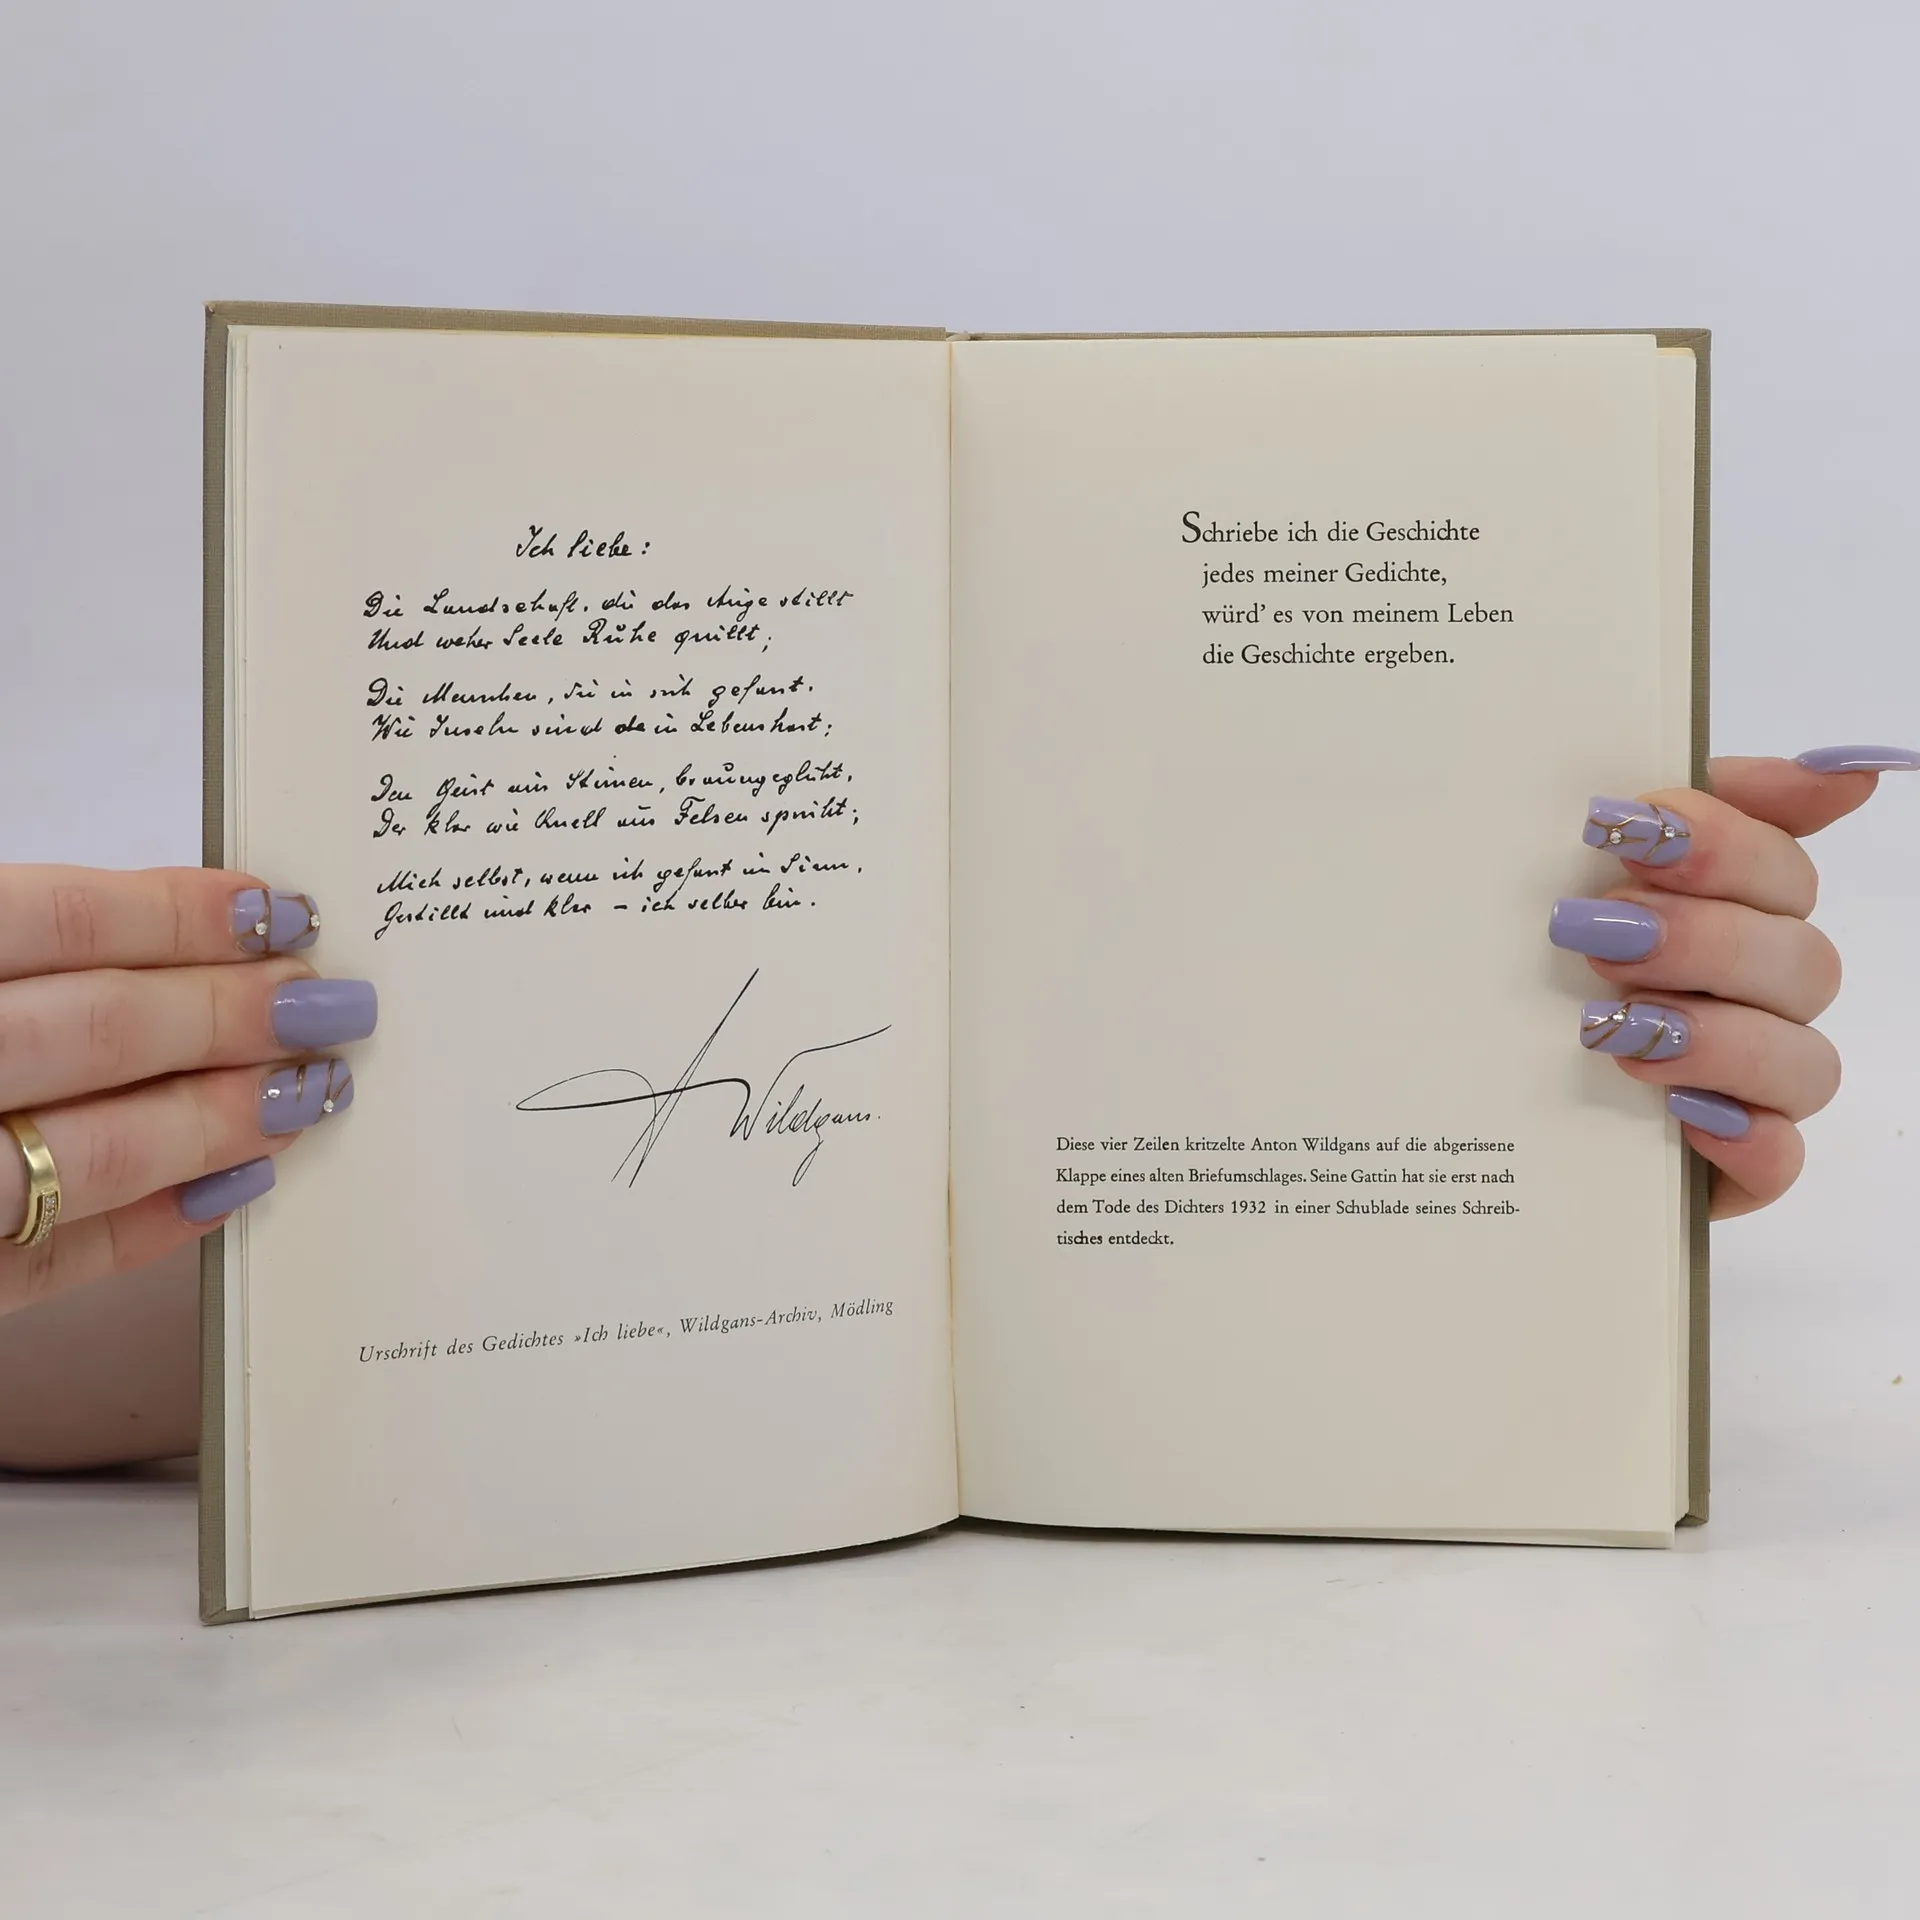 Ich liebe:
Die Landschaft, die das Auge stillt
Und weher Seele Ruhe quillt;
Die Menschen, die in sich gefasst,
Wie Inseln sind da in Lebenshast;
Den Geist aus Stirnen, braungeglüht,
Der klar wie Quell aus Felsen sprüht;
Mich selbst, wenn ich gefasst im Sinn,
Gestillt und klar – ich selber bin.
A Wildgans.
Urschrift des Gedichtes »Ich liebe«, Wildgans-Archiv, Mödling
Schriebe ich die Geschichte
jedes meiner Gedichte,
würd’ es von meinem Leben
die Geschichte ergeben.
Diese vier Zeilen kritzelte Anton Wildgans auf die abgerissene
Klappe eines alten Briefumschlages. Seine Gattin hat sie erst nach
dem Tode des Dichters 1932 in einer Schublade seines Schreib-
tisches entdeckt.